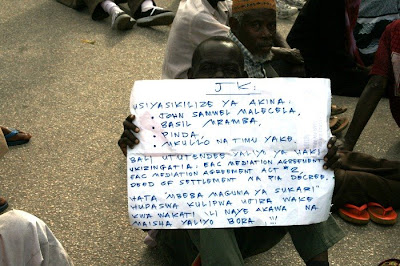 J K:
USIYASIKILIZE YA AKINA:
• JOHN SAMWEL MALECELA,
• BASIL MRAMBA,
• PINDA,
• MKULLO NA TIMU YAKE.
BALI UTUTENDEE YALIYO YA HAKI
UKIZINGATIA. EAC MEDIATION AGREEMENT
EAC MEDIATION AGREEMENT ACT #2,
DEED OF SETTLEMENT NA PIA DECREE.
HATA "MBEBA MAGUNIA YA SUKARI"
HUPASWA KULIPWA UJIRA WAKE
KWA WAKATI ILI NAYE AKAWA NA
MAISHA YALIYO BORA !!!